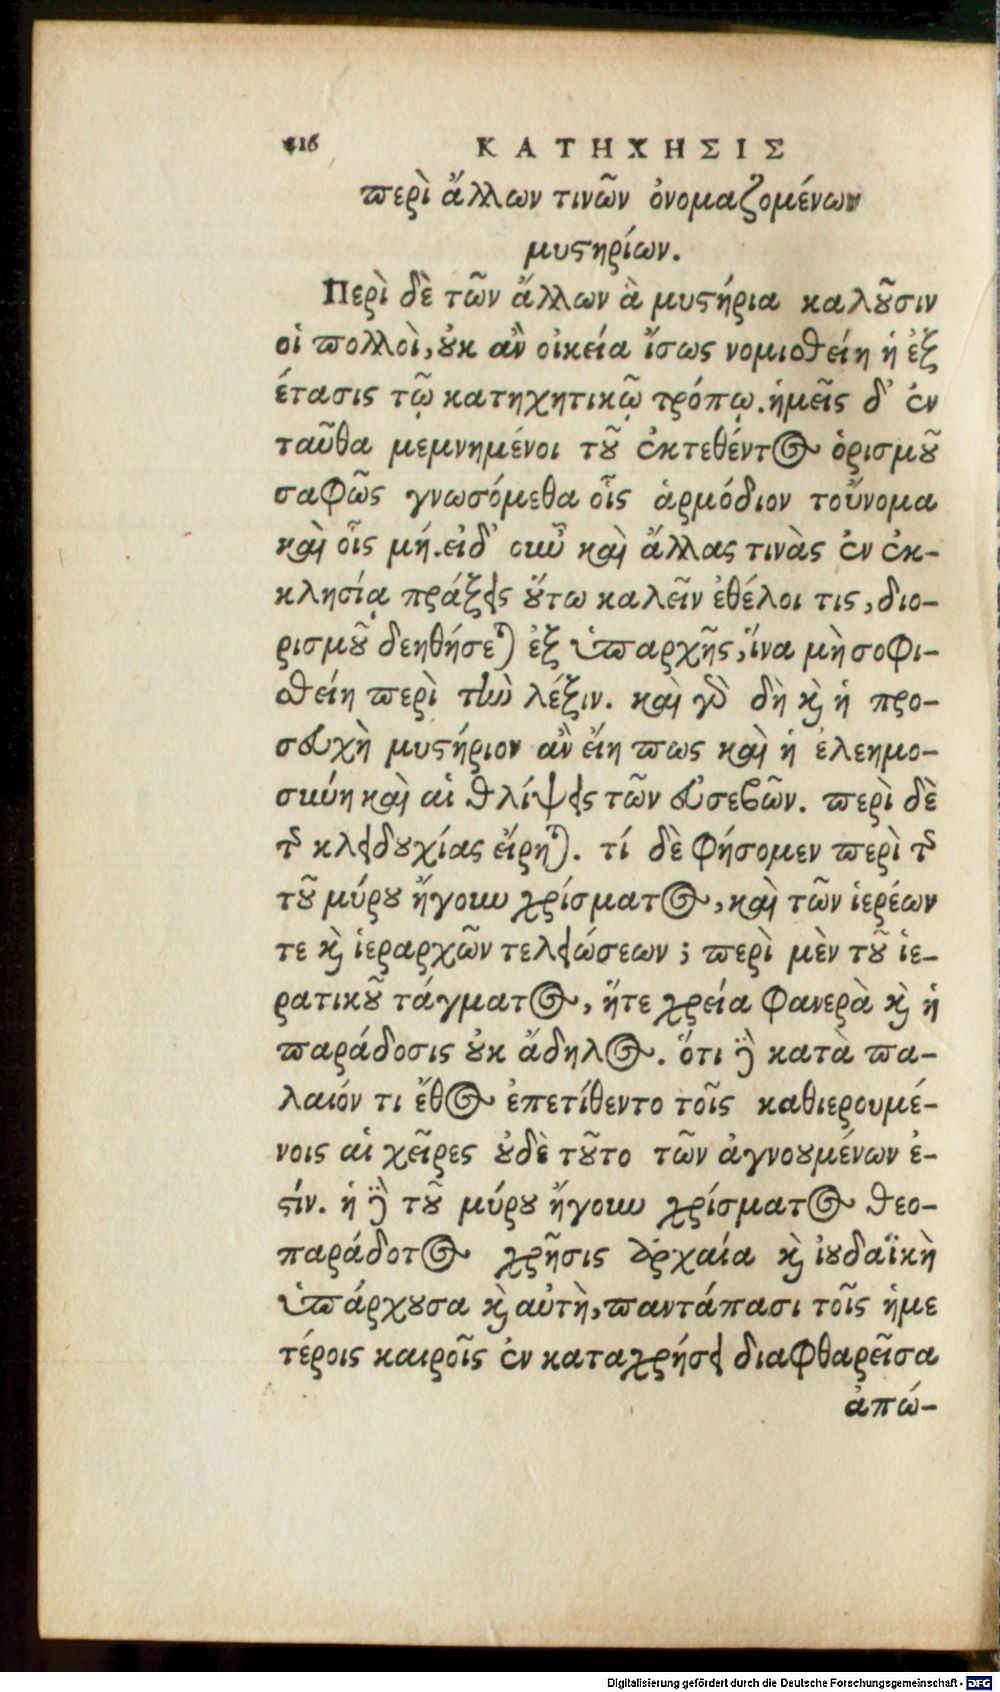 116 ΚΑΤΗΧΗΣΙΣ
περὶ ἄλλων τινῶν ὀνομαζομένων
μυστηρίων.
Περὶ δὲ τῶν ἄλλων ἃ μυστήρια καλοῦσιν
οἱ πολλοὶ, οὐκ ἂν οἰκεία ἴσως νομισθείη ἡ ἐξ
έτασις τῷ κατηχητικῷ τρόπῳ. ἡμεῖς δ' ἐν
ταῦθα μεμνημένοι τοῦ ἐκτεθέντος ὁρισμοῦ
σαφῶς γνωσόμεθα οἷς ἁρμόδιον τοὔνομα
καὶ οἷς μή. εἰ δ' οὖν καὶ ἄλλας τινὰς ἐν ἐκ-
κλησίᾳ πράξεις οὕτω καλεῖν ἐθέλοι τις, διο-
ρισμοῦ δεηθήσεται ἐξ ὑπαρχῆς, ἵνα μὴ σοφι-
σθείη περὶ τὴν λέξιν. καὶ γὰρ δὴ καὶ ἡ προ-
σευχὴ μυστήριον ἂν εἴη πως καὶ ἡ ἐλεημο-
σύνη καὶ αἱ θλίψεις τῶν εὐσεβῶν. περὶ δὲ
τῆς κλειδουχίας εἴρηται. τί δὲ φήσομεν περὶ τῆς
τοῦ μύρου ἤγουν χρίσματος, καὶ τῶν ἱερέων
τε καὶ ἱεραρχῶν τελειώσεων; περὶ μὲν τοῦ ἱε-
ρατικοῦ τάγματος, ἥτε χρεία φανερὰ καὶ ἡ
παράδοσις οὐκ ἄδηλος. ὅτι γὰρ κατὰ πα-
λαιόν τι ἔθος ἐπετίθεντο τοῖς καθιερουμέ-
νοις αἱ χεῖρες οὐδὲ τοῦτο τῶν ἀγνουμένων ἐ-
στίν. ἡ γὰρ τοῦ μύρου ἤγουν χρίσματος θεο-
παράδοτος χρῆσις ἀρχαία καὶ ἰουδαϊκὴ
ὑπάρχουσα καὶ αὐτὴ, παντάπασι τοῖς ἡμε
τέροις καιροῖς ἐν καταχρήσει διαφθαρεῖσα
ἀπώ-
Digitalisierung gefördert durch die Deutsche Forschungsgemeinschaft - DFG